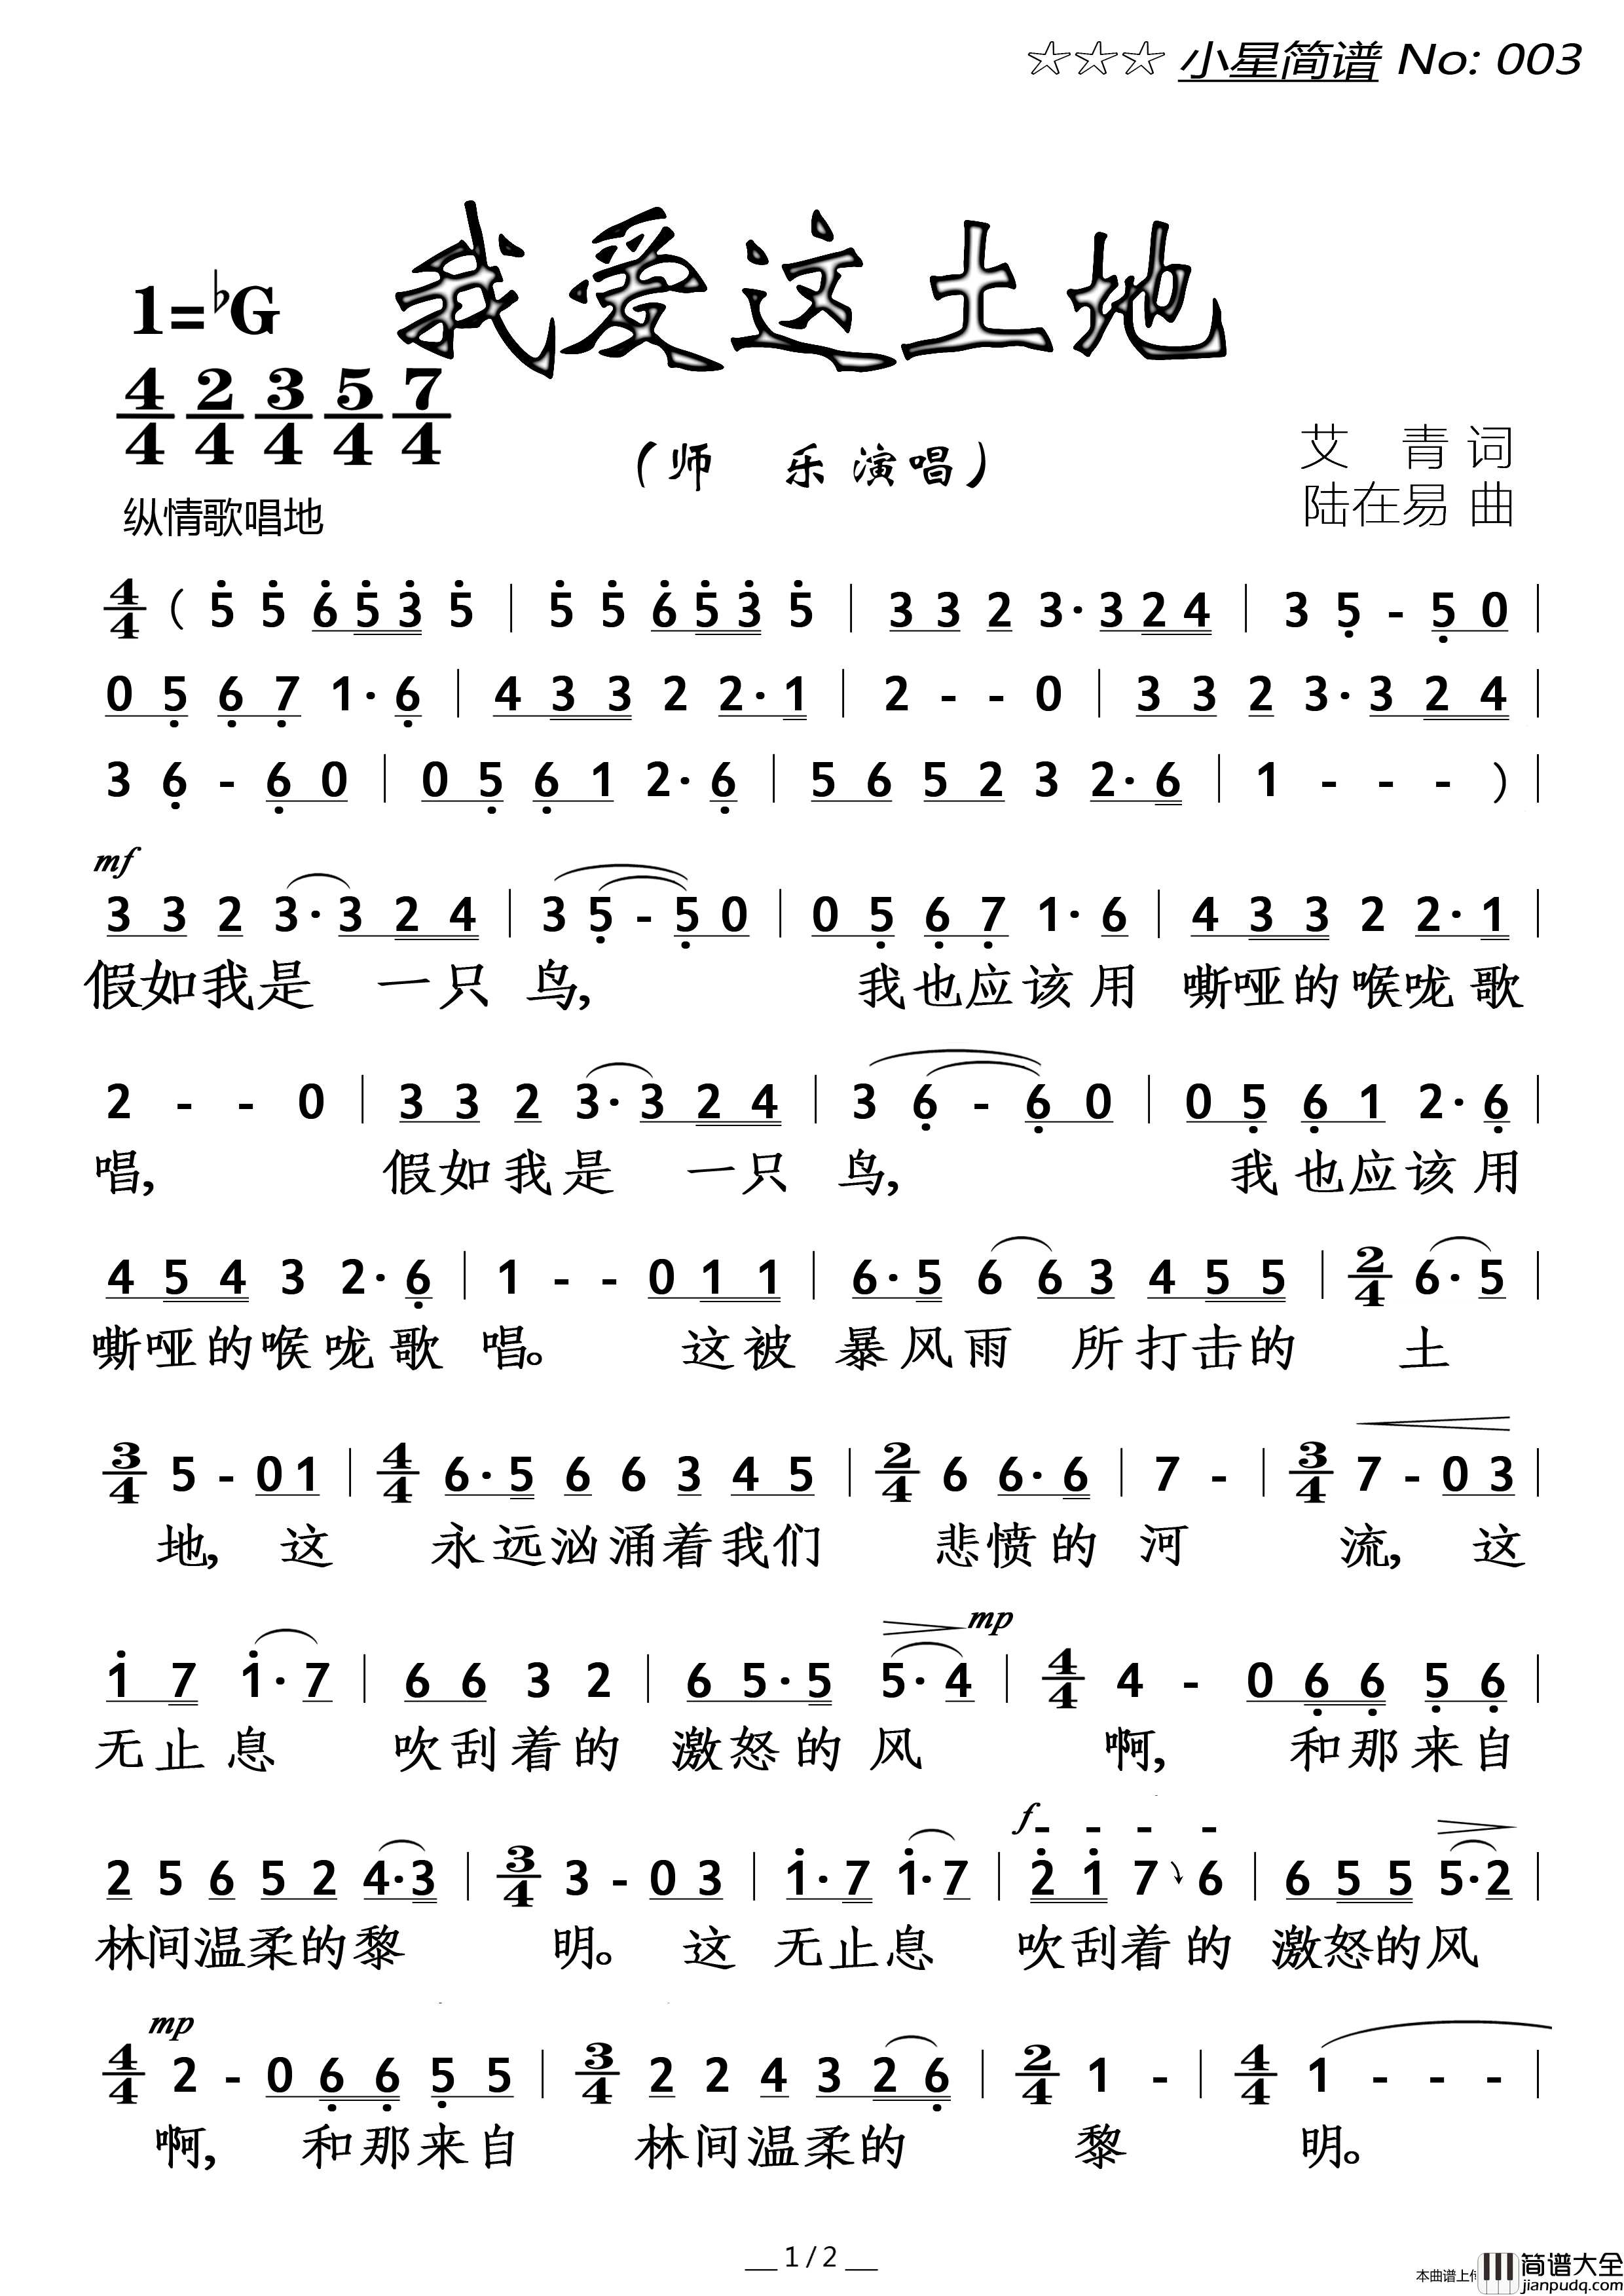 ☆☆☆ 小星简谱 No: 003
我爱这土地
1=♭G
4/4 2/4 3/4 5/4 7/4
(师 乐演唱)
艾 青 词
陆在易 曲
纵情歌唱地
4/4 ( 5 5 6 5 3 5 | 5 5 6 5 3 5 | 3 3 2 3· 3 2 4 | 3 5 - 5 0 |
0 5 6 7 1· 6 | 4 3 3 2 2· 1 | 2 - - 0 | 3 3 2 3· 3 2 4 |
3 6 - 6 0 | 0 5 6 1 2· 6 | 5 6 5 2 3 2· 6 | 1 - - - ) |
mf
3 3 2 3· 3 2 4 | 3 5 - 5 0 | 0 5 6 7 1· 6 | 4 3 3 2 2· 1 |
假如我是 一只 鸟, 我也应该用 嘶哑的喉咙歌
2 - - 0 | 3 3 2 3· 3 2 4 | 3 6 - 6 0 | 0 5 6 1 2· 6 |
唱, 假如我是 一只 鸟, 我也应该用
4 5 4 3 2· 6 | 1 - - 0 1 1 | 6· 5 6 6 3 4 5 5 | 2/4 6· 5 |
嘶哑的喉咙歌 唱。 这被 暴风雨 所打击的 土
3/4 5 - 0 1 | 4/4 6· 5 6 6 3 4 5 | 2/4 6 6· 6 | 7 - | 3/4 7 - 0 3 |
地, 这 永远汹涌着我们 悲愤的 河 流, 这
mp
1 7 1· 7 | 6 6 3 2 | 6 5· 5 5· 4 | 4/4 4 - 0 6 6 5 6 |
无止息 吹刮着的 激怒的风 啊, 和那来自
f
2 5 6 5 2 4· 3 | 3/4 3 - 0 3 | 1· 7 1· 7 | 2 1 7 6 | 6 5 5 5· 2 |
林间温柔的黎 明。 这 无止息 吹刮着的 激怒的风
mp
4/4 2 - 0 6 6 5 5 | 3/4 2 2 4 3 2 6 | 2/4 1 - | 4/4 1 - - - |
啊, 和那来自 林间温柔的 黎 明。
1 / 2
本曲谱上传
简谱大全
jianpudq.com